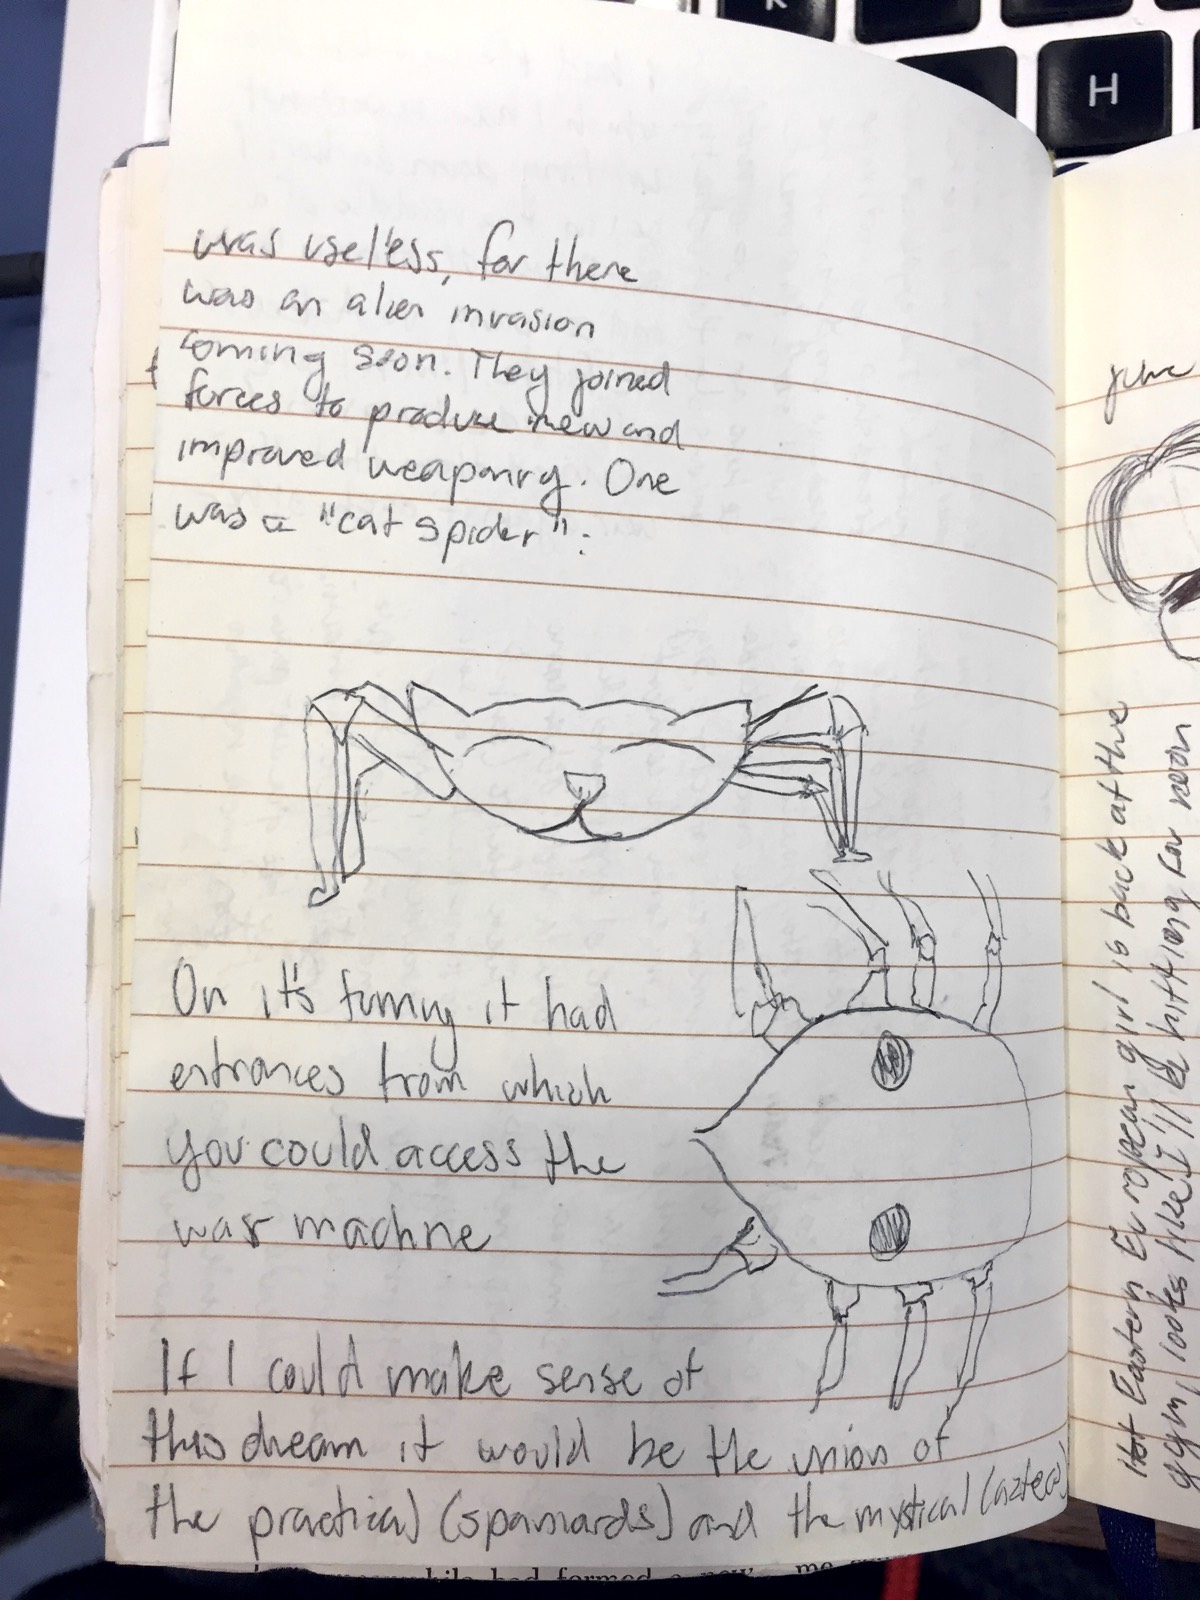 was useless, for there
was an alien invasion
coming soon. They joined
forces to produce new and
improved weaponry. One
was a "cat spider":
On it's tummy it had
entrances from which
you could access the
war machine
If I could make sense of
this dream it would be the union of
the practical (spaniards) and the mystical (aztecs)
Hot Eastern European girl is back at the
gym, looks like I'll be hitting for neon
H
K
had formed a new